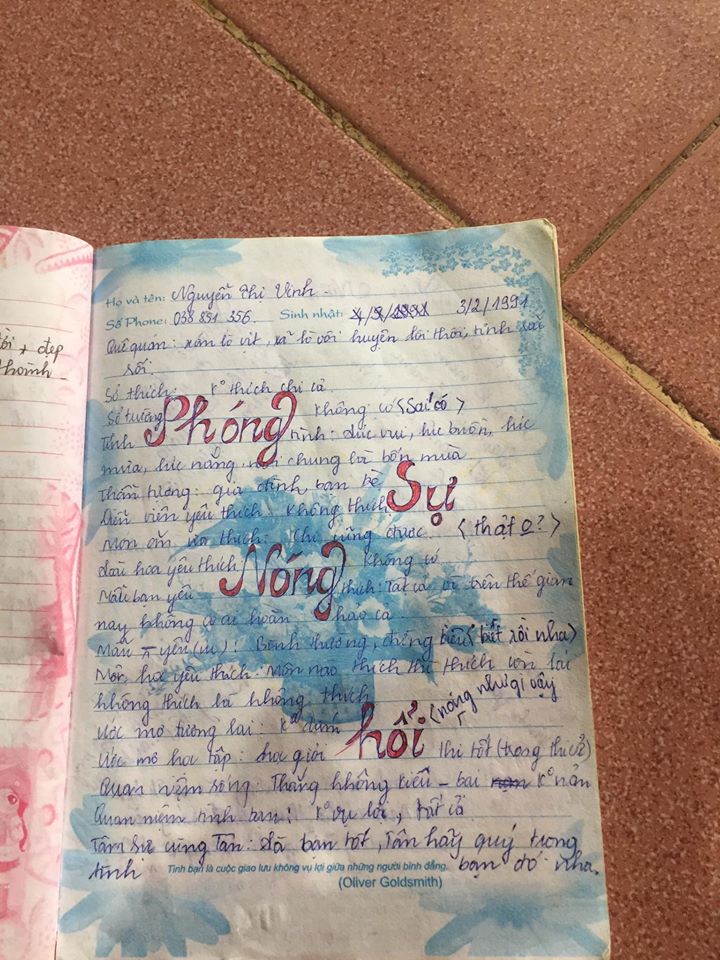 ời + đẹp
thành
Họ và tên: Nguyễn Thị Vinh.
Số Phone: 038 851 356 Sinh nhật: 3/2/1991
Quê quán: xóm lò vit, xã lò vôi huyện lôi thôi, tỉnh
rối.
Sở thích: K° thích chi cả
Sở trường Không có <Sai có>
Phóng
Tính tình: lúc vui, lúc buồn, lúc
mưa, lúc nắng, nói chung là bốn mùa
Thần tượng: gia đình, bạn bè
Sự
Diễn viên yêu thích Không thích
Món ăn ưa thích: Chi cũng được <thật o?>
Loài hoa yêu thích Không có
Nóng
Mẫu bạn yêu thích: Tất cả vì trên thế gian
này không có ai hoàn hảo cả
yên(m): Bình thường, chẳng <biết rồi nha>
Môn học yêu thích: Môn nào thích thì thích còn lại
không thích là không thích
Ước mơ tương lai: K° <nóng như gì vậy
hổi
Ước mơ học tập: học giỏi thi tốt (trong thi cử)
Quan niệm sống: Thắng không kiêu - bại K° nản
Quan niệm tình bạn: K° vụ lợi, tất cả
Tâm sự cùng Tân: Là bạn tốt, Tân hãy quý trọng
tình bạn đó nha.
Tình bạn là cuộc giao lưu không vụ lợi giữa những người bình đẳng.
(Oliver Goldsmith)